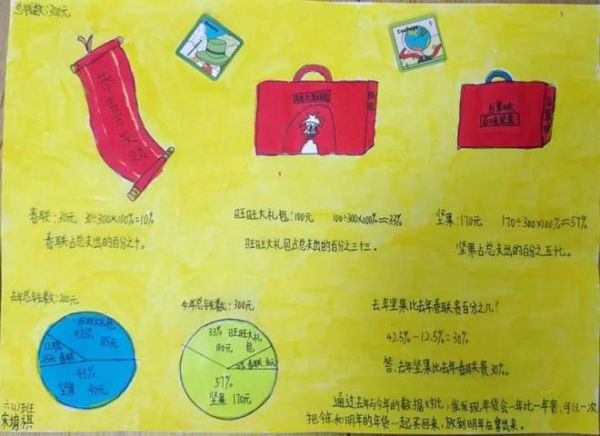 总钱数:300元
春联:30元 30÷300×100%=10%
春联占总支出的百分之十。
旺旺大礼包:100元 100÷300×100%≈33%
旺旺大礼包占总支出的百分之三十三。
坚果:170元 170÷300×100%≈57%
坚果占总支出的百分之五十七。
去年总钱数:200元
旺旺大礼包
42.5%
85元
12.5%
25元 春联
45%
坚果 90元
今年总钱数:300元
33% 旺旺大礼
100元 包
10% 春联 30元
57%
坚果 170元
去年坚果比去年春联贵百分之几?
42.5%-12.5%=30%
答:去年坚果比去年春联贵30%。
通过去年与今年的数据对比,我发现,年货会一年比一年贵,可以一次
把今年和明年的年货一起买回来,放到明年在拿出来。
六(4)班